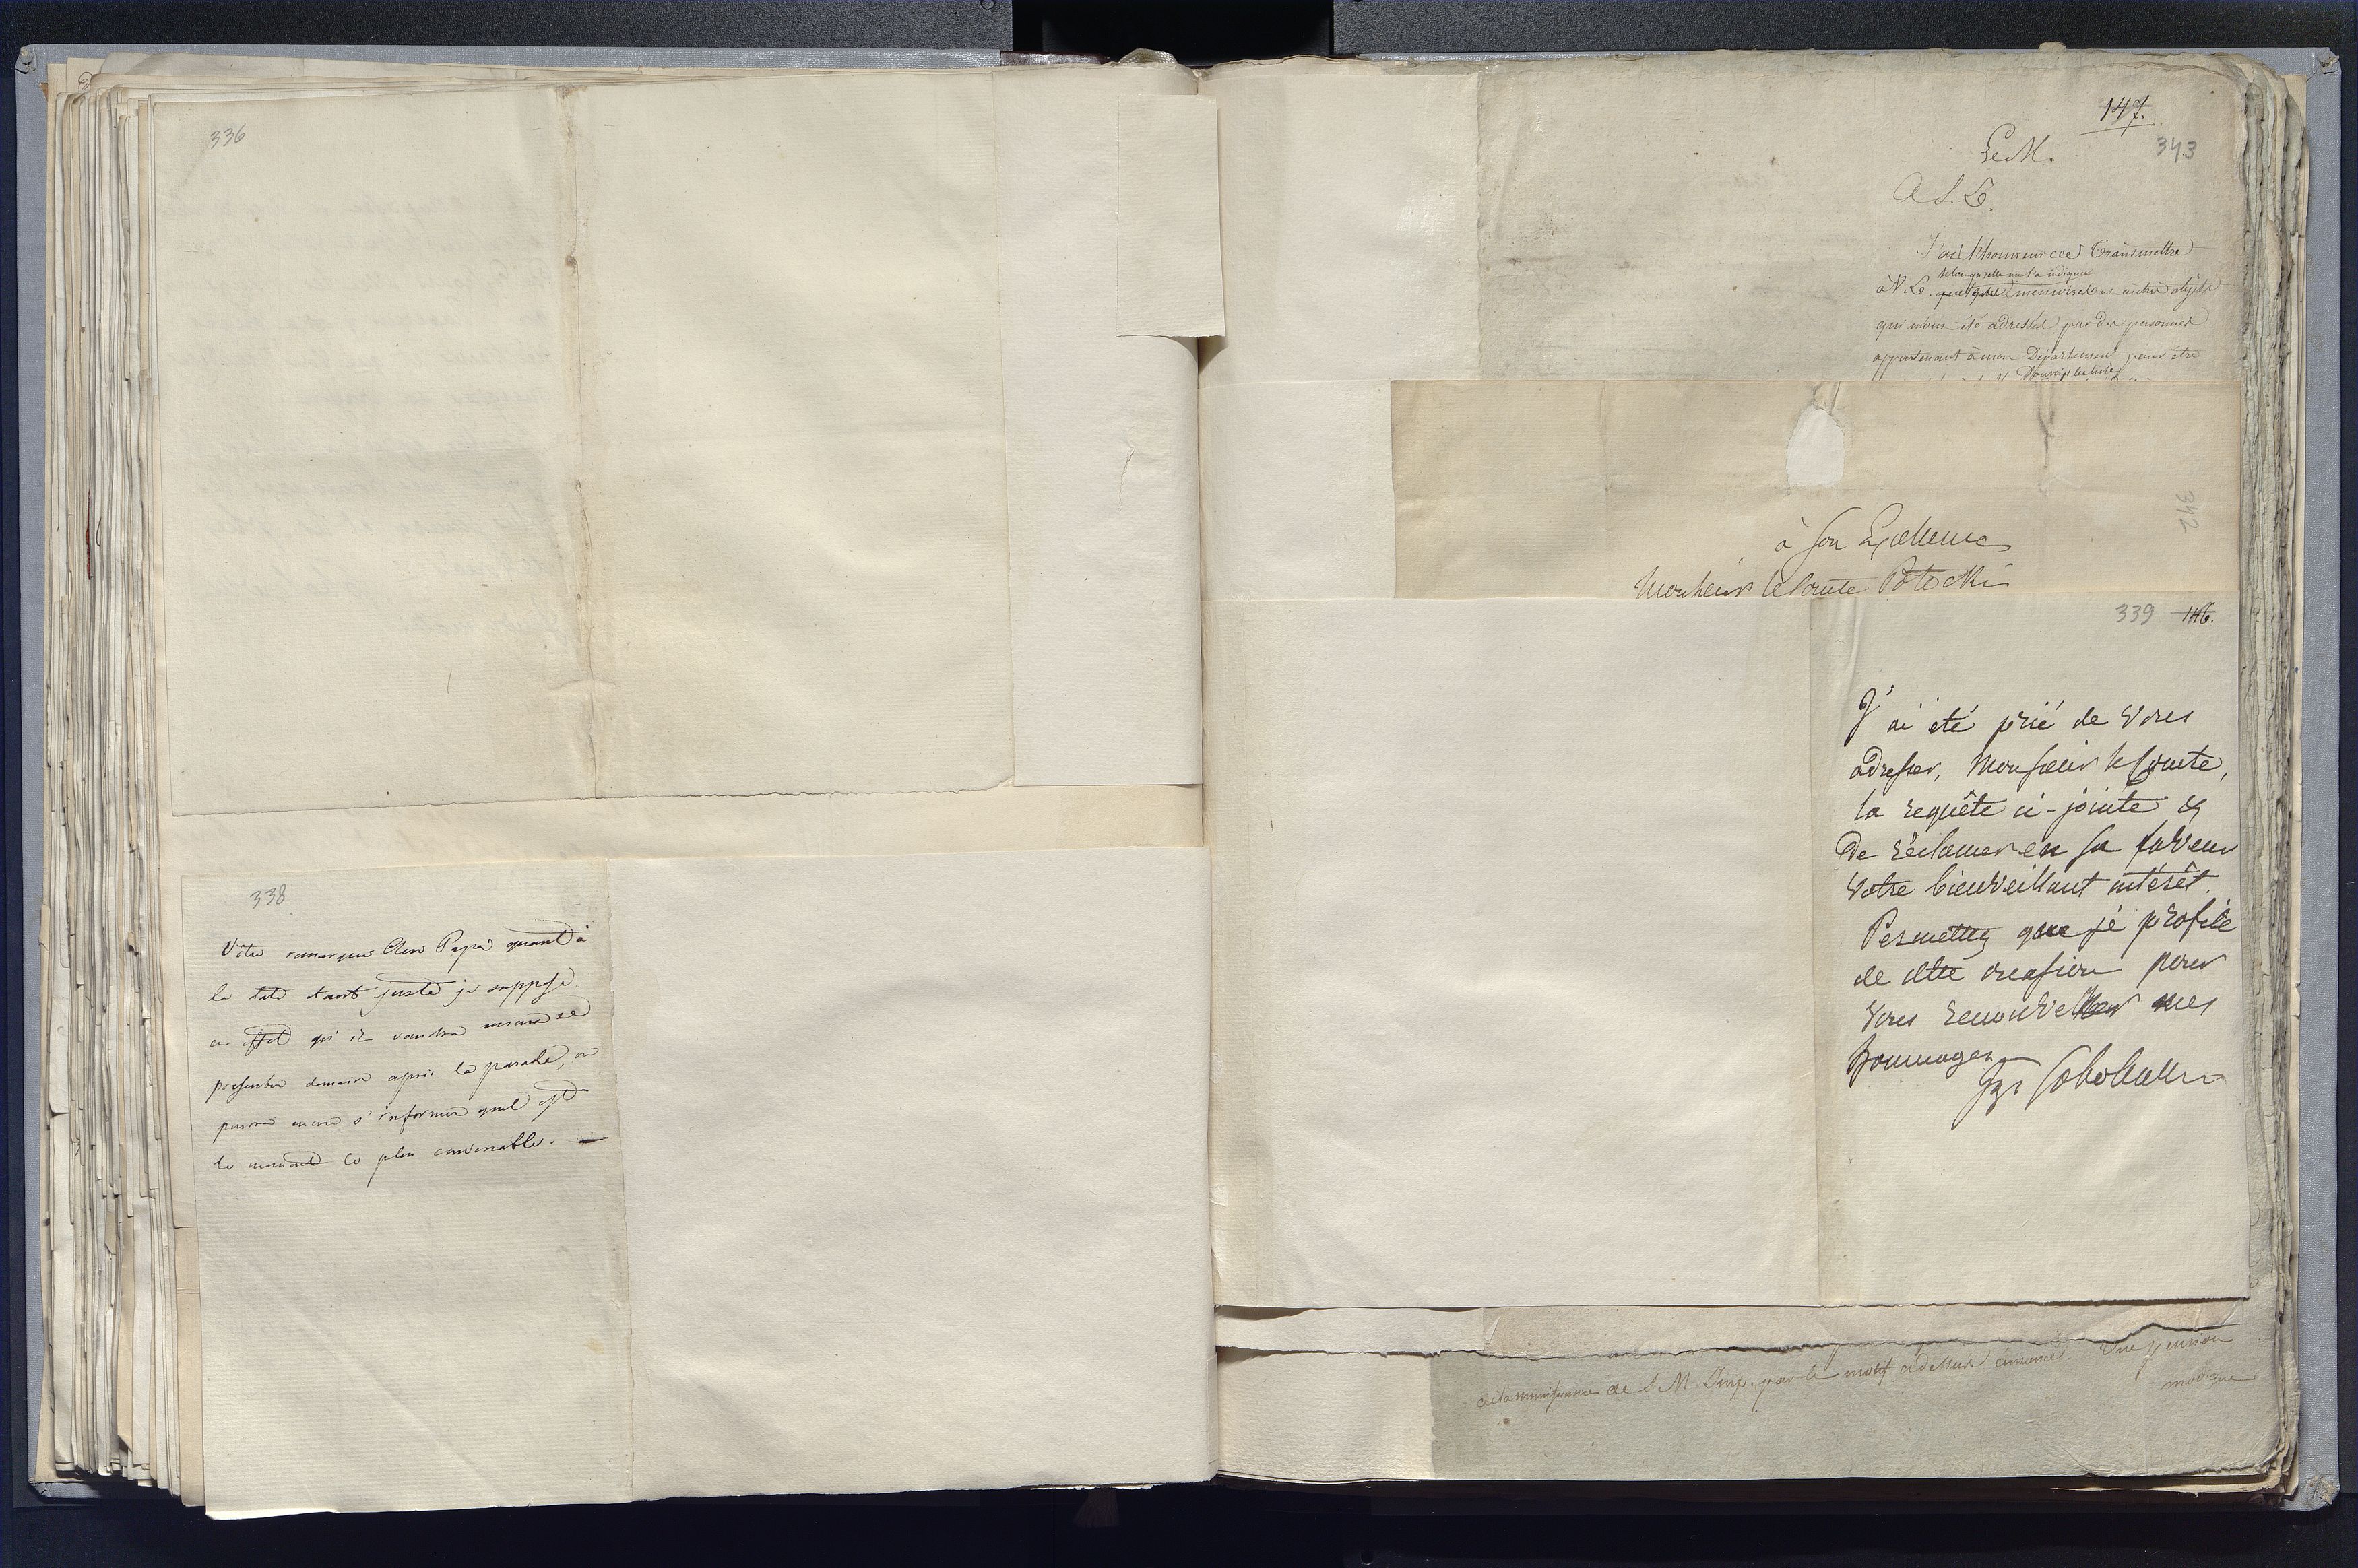 336
338
Vôtre remarque Cher Papa quant à
la tete etant juste je suppose
en effet qu'il voudra mieux se
presenter demain après la parade, on
pourra encore s'informer quel est
le moment le plus convenable. —
147.
343
Le M.
A S. E.
J'ai l'honneur de transmettre
selon qu'elle m'a indiqué
à V. E. quelques mémoires et autres objets
qui m'ont été adressés par des personnes
appartenant à mon Département pour être
342
à Son Excellence
Monsieur le Comte Potocki
339 146.
J'ai été prié de Vous
adresser, Monsieur le Comte,
la requête ci-jointe &
de réclamer en sa faveur
Votre bienveillant intérêt.
Permettez que je profite
de cette occasion pour
Vous renouveller mes
hommages
Ig. Sobolewski
de la munificence de S. M. Imp. par le motif ci dessus énoncé. Une pension
modique